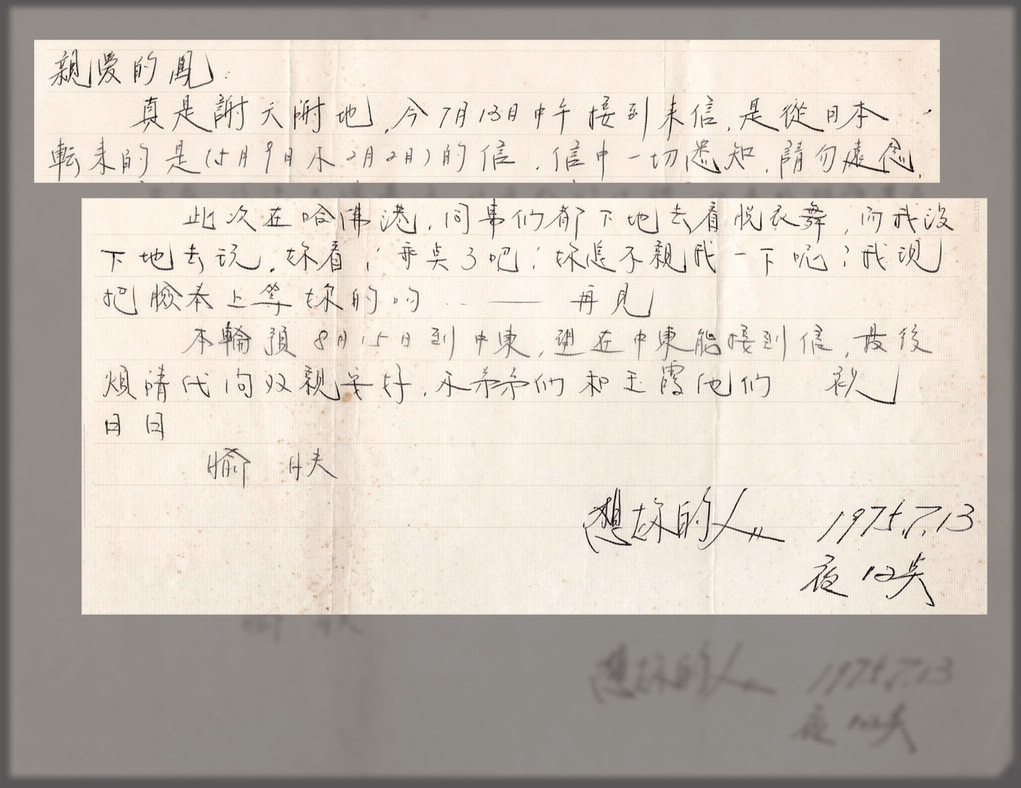 親愛的鳳：
真是謝天謝地，今7月13日中午接到來信，是從日本
転來的是(5月9日和2月2日)的信，信中一切悉知，請勿遠念，
此次在哈佛港，同事們都下地去看脫衣舞，而我沒
下地去玩，妳看！乖吧！妳怎不親我一下呢？我現
把臉奉上等妳的吻……——再見
本輪預8月15日到中東，在中東能接到信，最後
煩請代向双親安好，和弟弟們和玉霞他們 祝
日日
愉快
想妳的人〃 1975.7.13
夜12点